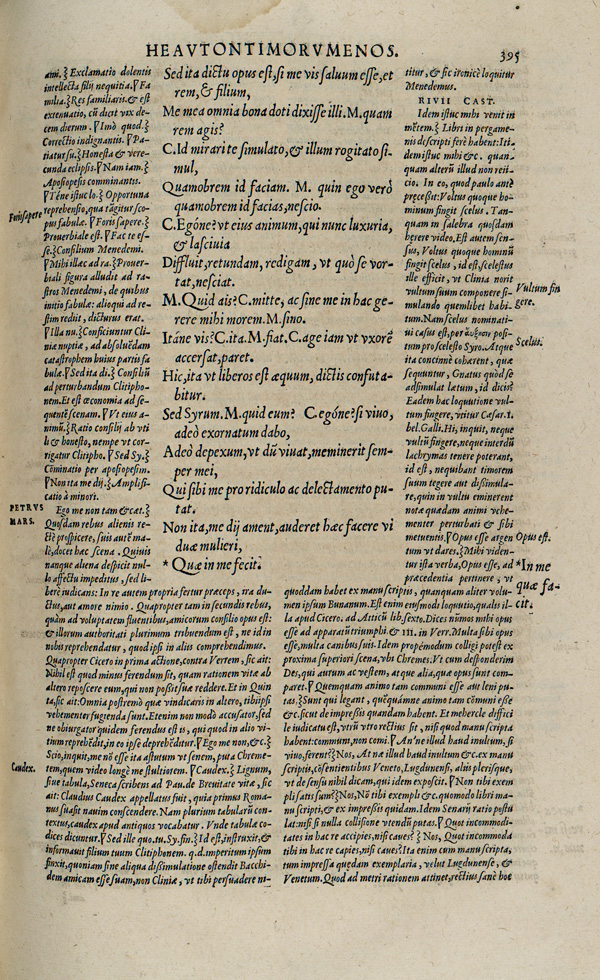 HEAVTONTIMORVMENOS.
395
ami. ⁊ Exclamatio dolentis
intellecta filij nequitia. ¶ Fa
milia. ⁊ Res familiaris. & est
extenuatio, cū dicit vix de-
cem dierum. ¶ Imò quod. ⁊
Correctio indignantis. ¶ Pa-
tiatur su. ⁊ Honesta & vere-
cunda eclipsis. ¶ Nam iam. ⁊
Aposiopesis comminantis.
¶ Téne istuc lo. ⁊ Opportuna
reprehensio, qua tāgitur sco-
pus fabulæ. ¶ Foris sapere. ⁊
Prouerbiale est. ¶ Fac te es-
se. ⁊ Consilium Menedemi.
¶ Mihi illæc ad ra. ⁊ Prouer-
biali figura alludit ad ra-
stros Menedemi, de quibus
initio fabulæ: alioqui ad re-
stim rediit, dicturus erat.
¶ Illa nu. ⁊ Conficiuntur Cli-
niæ nuptiæ, ad absoluēdam
catastrophem huius partis fa
bulæ. ¶ Sed ita di. ⁊ Consiliū
ad perturbandum Clitipho-
nem. Et est œconomia ad se-
quentē scenam. ¶ Vt eius a-
nimū. ⁊ Ratio consilij ab vti
li & honesto, nempe vt cor-
rigatur Clitipho. ¶ Sed Sy. ⁊
Cōminatio per aposiopesim.
¶ Non ita me dij. ⁊ Amplifi-
catio à minori.
Foris sapere
PETRVS
MARS.
Ego me non tam & cæt. ⁊
Quosdam rebus alienis re-
ctè prospicere, suis autē ma-
lè, docet hæc scena. Quiuis
nanque aliena despicit nul-
lo affectu impeditus, sed li-
Sed ita dictu opus est, si me vis saluum esse, et
rem, & filium,
Me mea omnia bona doti dixisse illi. M. quam
rem agis?
C. Id mirari te simulato, & illum rogitato si-
mul,
Quamobrem id faciam. M. quin ego verò
quamobrem id facias, nescio.
C. Egóne? vt eius animum, qui nunc luxuria,
& lasciuia
Diffluit, retundam, redigam, vt quò se vor-
tat, nesciat.
M. Quid ais? C. mitte, ac sine me in hac ge-
rere mihi morem. M. sino.
Itáne vis? C. ita. M. fiat. C. age iam vt vxorē
accersat, paret.
Hic, ita vt liberos est æquum, dictis confuta-
bitur.
Sed Syrum. M. quid eum? C. egóne? si viuo,
adeò exornatum dabo,
Adeò depexum, vt dū viuat, meminerit sem-
per mei,
Qui sibi me pro ridiculo ac delectamento pu-
tat.
Non ita, me dij ament, auderet hæc facere vi
duæ mulieri,
* Quæ in me fecit.
titur, & sic ironicè loquitur
Menedemus.
RIVII CAST.
Idem istuc mihi venit in
mētem. ⁊ Libri in pergame-
nis descripti ferè habent: Iti-
dem istuc mihi &c. quan-
quam alterū illud non reii-
cio. In eo, quod paulo antè
præceßit: Voltus quoque ho-
minum fingit scelus. Tan-
quam in salebra quosdam
hærere video, Est autem sen-
sus, Voltus quoque hominū
fingit scelus, id est, scelestus
ille efficit, vt Clinia norit
vultum suum componere si-
mulando quemlibet habi-
tum. Nam scelus nominati-
ui casus est, posi-
tum pro scelesto Syro. Atque
ita concinnè cohærent, quæ
sequuntur, Gnatus quòd se
adsimulat lætum, id dicis?
Eadem hac loquutione vul-
tum fingere, vtitur Cæsar. 1.
bel. Galli. Hi, inquit, neque
vultū fingere, neque interdū
lachrymas tenere poterant,
id est, nequibant timorem
suum tegere aut dissimula-
re, quin in vultu eminerent
notæ quædam animi vehe-
menter perturbati & sibi
metuentis. ¶ Opus esse argen
tum vt dares. ⁊ Mihi viden-
tur ista verba, Opus esse, ad
præcedentia pertinere, vt
Vultum fin
gere.
Scelus.
Opus est.
*In me
quæ fe-
cit.
berè iudicans: In re autem propria fertur præceps, ira du-
ctus, aut amore nimio. Quapropter tam in secundis rebus,
quàm ad voluptatem fluentibus, amicorum consilio opus est:
& illorum authoritati plurimum tribuendum est, ne id in
nobis reprehendatur, quod ipsi in aliis comprehendimus.
Quapropter Cicero in prima actione, contra Verrem, sic ait:
Nihil est quod minus ferendum sit, quàm rationem vitæ ab
altero reposcere eum, qui non poßit suæ reddere. Et in Quin
ta, sic ait: Omnia postremò quæ vindicaris in altero, tibi ipsi
vehementer fugienda sunt. Etenim non modò accusator, sed
ne obiurgator quidem ferendus est is, qui quod in alio vi-
tium reprehēdit, in eo ipse deprehēditur. ¶ Ego me non, &c. ⁊
Scio, inquit, me nō esse ita astutum vt senem, puta Chreme-
tem, quem video longè me stultiorem. ¶ Caudex. ⁊ Lignum,
siue tabula, Seneca scribens ad Pau. de Breuitate vitæ, sic
ait: Claudius Caudex appellatus fuit, quia primus Roma-
nis suasit nauim conscendere. Nam plurium tabularū con-
textus, caudex apud antiquos vocabatur. Vnde tabulæ co-
dices dicuntur. ¶ Sed ille quo. tu. Sy. fin. ⁊ Id est, instruxit, &
informauit filium tuum Clitiphonem. q. d. imperitum ipsum
finxit, quoniam sine aliqua dissimulatione ostendit Bacchi-
dem amicam esse suam, non Cliniæ, vt tibi persuadere ni-
Caudex.
quoddam habet ex manuscriptis, quanquam aliter volu-
men ipsum Bunanum. Est enim eiusmodi loquutio, qualis il-
la apud Cicero. ad Atticū lib. sexto. Dices nūmos mihi opus
esse ad apparatū triumphi & III. in Verr. Multa sibi opus
esse, multa canibus suis. Idem propemodum colligi potest ex
proxima superiori scena, vbi Chremes. Vt cum desponderim
Des, qui aurum ac vestem, atque alia, quæ opus sunt com-
paret. ¶ Quemquam animo tam communi esse aut leni pu-
tas. ⁊ Sunt qui legant, quēquámne animo tam cōmuni esse
&c. sicut de impreßis quædam habent. Et mehercle diffici
le iudicatu est, vtrū vtro rectius sit, nisi quod manuscripta
habent: communi, non comi. ¶ An'ne illud haud inultum, si
viuo, ferent? ⁊ Nos, At ne illud haud inultum &c. ex manu
scriptis, cōsentientibus Veneto, Lugdunensi, aliis plerisque:
vt de sensu nihil dicam, qui idem exposcit. ¶ Non tibi exem
pli satis sum? ⁊ Nos, Nō tibi exempli &c. quomodo libri ma-
nu scripti, & ex impreßis quidam. Idem Senarij ratio postu
lat: nisi si nulla collisione vtendū putas. ¶ Quot incommodi-
tates in hac re accipies, nisi caues? ⁊ Nos, Quot incommoda
tibi in hac re capies, nisi caues? Ita enim cum manu scripta,
tum impressa quædam exemplaria, velut Lugdunense, &
Venetum. Quod ad metri rationem attinet, rectius sanè hoc